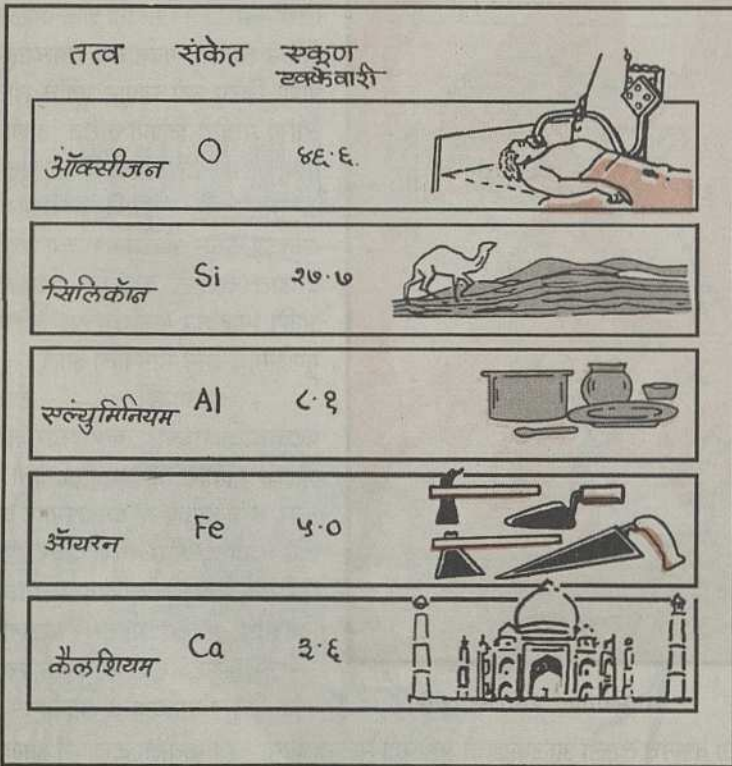 तत्व संकेत एकूण
टक्केवारी
ऑक्सीजन O ४६.६.
सिलिकॉन Si २७.७
एल्युमिनियम Al ८.१
ऑयरन Fe ५.०
कैलशियम Ca ३.६